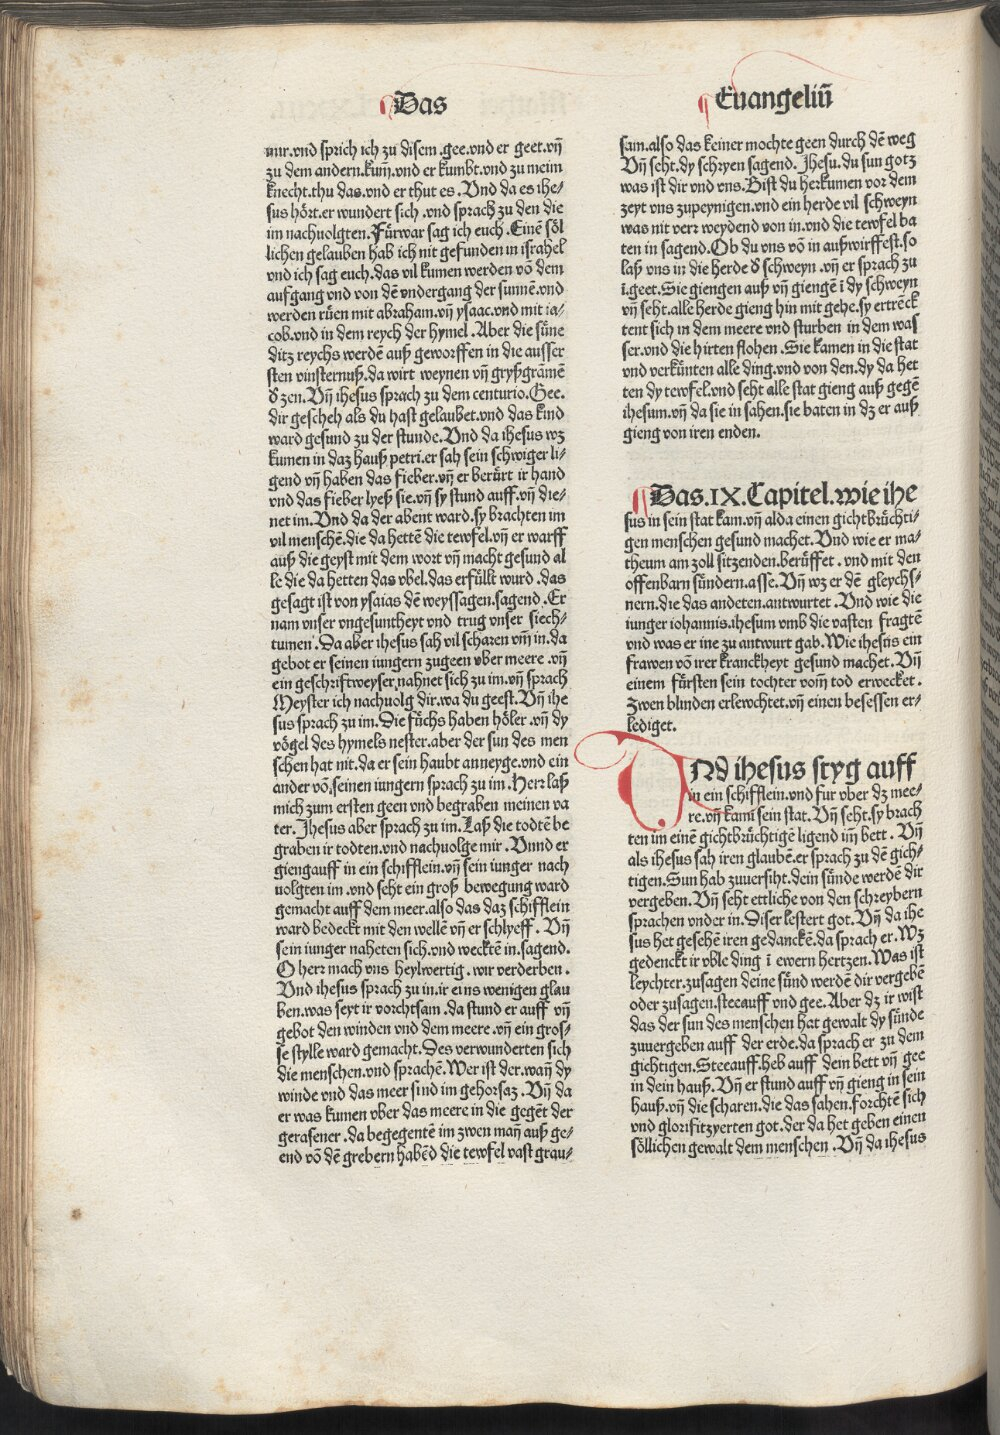 Das
Euangeliū
mir.vnd sprich ich zu disem.gee.vnd er geet.vñ
zu dem andern.kum̃.vnd er kumbt.vnd zu meim
knecht.thu das.vnd er thut es. Vnd da es ihe⸗
sus hört.er wundert sich.vnd sprach zu den die
im nachuolgten.Fürwar sag ich euch.Einē söl
lichen gelauben hab ich nit gefunden in israhel
vnd ich sag euch.das vil kumen werden vō dem
aufgang vnd von dē vndergang der sunnē.vnd
werden rüen mit abraham.vñ ysaac.vnd mit ia⸗
cob.vnd in dem reych der hymel.Aber die süne
ditz reychs werdē auß geworffen in die ausser
sten vinsternuß.da wirt weynen vñ gryßgramē
d̕ zen.Vñ ihesus sprach zu dem centurio.Gee.
dir gescheh als du hast gelaubet.vnd das kind
ward gesund zu der stunde.Vnd da ihesus wz
kumen in daz hauß petri.er sah sein schwiger li⸗
gend vñ haben das fieber.vñ er berürt ir hand
vnd das fieber lyeß sie.vñ sy stund auff.vñ die⸗
net im.Vnd da der abent ward.sy brachten im
vil menschē.die da hettē die tewfel.vñ er warff
auß die geyst mit dem wort vñ macht gesund al
le die da hetten das vbel.das erfüllt wurd.das
gesagt ist von ysaias dē weyssagen.sagend.Er
nam vnser vngesuntheyt vnd trug vnser siech⸗
tumen.Da aber ihesus sah vil scharen vm̃ in.da
gebot er seinen iungern zugeen vber meere.vñ
ein geschriftweyser.nahnet sich zu im.vñ sprach
Meyster ich nachuolg dir.wa du geest.Vñ ihe
sus sprach zu im.Die füchs haben höler.vñ dy
vögel des hymels nester.aber der sun des men
schen hat nit.da er sein haubt anneyge.vnd ein
ander vō.seinen iungern sprach zu im.Herr laß
mich zum ersten geen vnd begraben meinen va
ter.Ihesus aber sprach zu im.Laß die todtē be
graben ir todten.vnd nachuolge mir.Vnnd er
giengauff in ein schifflein.vñ sein iunger nach
uolgten im.vnd seht ein groß bewegung ward
gemacht auff dem meer.also das daz schifflein
ward bedeckt mit den wellē vñ er schlyeff. Vñ
sein iunger naheten sich.vnd wecktē in.sagend.
O herr mach vns heylwertig.wir verderben.
Vnd ihesus sprach zu in.ir eins wenigen glau
ben.was seyt ir vorchtsam.da stund er auff vñ
gebot den winden vnd dem meere.vñ ein gros⸗
se stylle ward gemacht.Des verwunderten sich
die menschen.vnd sprachē.Wer ist der.wañ dy
winde vnd das meer sind im gehorsaz.Vñ da
er was kumen vber das meere in die gegēt der
gerasener.da begegentē im zwen mañ auß ge⸗
end vō dē grebern habēd die tewfel vast grau⸗
sam.also das keiner mochte geen durch dē weg
Vñ seht.dy schryen sagend.Ihesu.du sun gotz
was ist dir vnd vns.Bist du herkumen vor dem
zeyt vns zupeynigen.vnd ein herde vil schweyn
was nit verr weydend von in.vnd die tewfel ba
ten in sagend.Ob du vns vō in außwirffest.so
laß vns in die herde d̕ schweyn.vñ er sprach zu
ī.geet.Sie giengen auß vñ giengē ī dy schweyn
vñ seht.alle herde gieng hin mit gehe.sy ertrēck
tent sich in dem meere vnd sturben in dem was
ser.vnd die hirten flohen.Sie kamen in die stat
vnd verkünten alle ding.vnd von den.dy da het
ten dy tewfel.vnd seht alle stat gieng auß gegē
ihesum.vñ da sie in sahen.sie baten in dz er auß
gieng von iren enden.
Das.IX.Capitel.wie ihe
sus in sein stat kam.vñ alda einen gichtbrüchti⸗
gen menschen gesund machet.Vnd wie er ma⸗
theum am zoll sitzenden.berüffet.vnd mit den
offenbarn sündern.asse.Vñ wz er dē gleychs⸗
nern.die das andeten.antwurtet.Vnd wie die
iunger iohannis.ihesum vmb die vasten fragtē
vnd was er ine zu antwurt gab.Wie ihesus ein
frawen vō irer kranckheyt gesund machet.Vñ
einem fürsten sein tochter vom̃ tod erwecket.
Zwen blinden erlewchtet.vñ einen besessen er⸗
lediget.
VNd ihesus styg auff
in ein schifflein.vnd fur vber dz mee⸗
re.vñ kam̃ sein stat.Vñ seht.sy brach
ten im einē gichtbrüchtigē ligend im̃ bett. Vñ
als ihesus sah iren glaubē.er sprach zu dē gich⸗
tigen.Sun hab zuuersiht.dein sünde werdē dir
vergeben.Vñ seht ettliche von den schreybern
sprachen vnder in.Diser lestert got.Vñ da ihe
sus het gesehē iren gedanckē.da sprach er.Wz
gedenckt ir vble ding ī ewern hertzen.Was ist
leychter.zusagen deine sünd werdē dir vergebē
oder zusagen.steeauff vnd gee.Aber dz ir wist
das der sun des menschen hat gewalt dy sünde
zuuergeben auff der erde.da sprach er zu dem
gichtigen.Steeauff.heb auff dein bett vñ gee
in dein hauß.Vñ er stund auff vñ gieng in sein
hauß.vñ die scharen.die das sahen.forchtē sich
vnd glorifitzyerten got.der da het geben einen
söllichen gewalt dem menschen.Vñ da ihesus